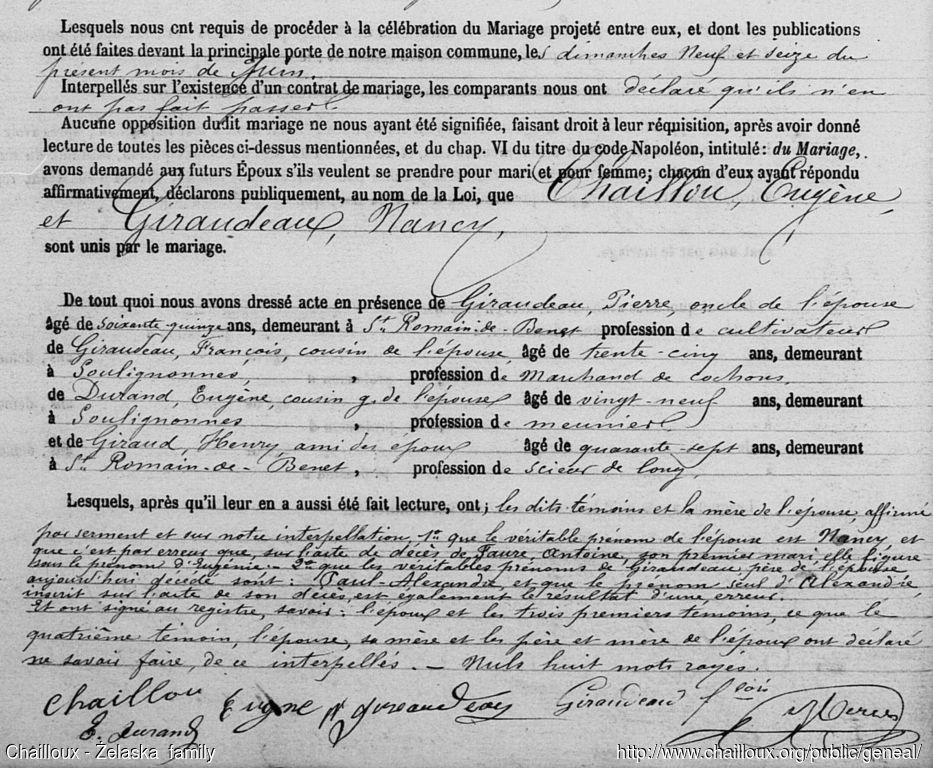 Lesquels nous ont requis de procéder à la célébration du Mariage projeté entre eux, et dont les publications
ont été faites devant la principale porte de notre maison commune, les dimanches Neuf et seize du
présent mois de Juin.
Interpellés sur l'existence d'un contrat de mariage, les comparants nous ont déclaré qu'ils n'en
ont pas fait passer.
Aucune opposition dudit mariage ne nous ayant été signifiée, faisant droit à leur réquisition, après avoir donné
lecture de toutes les pièces ci-dessus mentionnées, et du chap. VI du titre du code Napoléon, intitulé : du Mariage,
avons demandé aux futurs Époux s'ils veulent se prendre pour mari et pour femme; chacun d'eux ayant répondu
affirmativement, déclarons publiquement, au nom de la Loi, que Chaillou, Eugène,
et Giraudeau, Nancy,
sont unis par le mariage.
De tout quoi nous avons dressé acte en présence de Giraudeau, Pierre, oncle de l'épouse
âgé de soixante-quinze ans, demeurant à St. Romain-de-Benet profession de cultivateur
de Giraudeau, François, cousin de l'épouse, âgé de trente-cinq ans, demeurant
à Soulignonnes, , profession de Marchand de cochons,
de Durand, Eugène, cousin g. de l'épouse âgé de vingt-neuf ans, demeurant
à Soulignonnes , profession de meunier
et de Giraud, Henry, ami des époux âgé de quarante-sept ans, demeurant
à St. Romain-de-Benet, , profession de scieur de long.
Lesquels, après qu'il leur en a aussi été fait lecture, ont ; les dits témoins et la mère de l'épouse, affirmé
par serment et sur notre interpellation, 1nt que le véritable prénom de l'épouse est Nancy, et
que c'est par erreur que, sur l'acte de décès de Faure, Antoine, son premier mari, elle figure
sous le prénom d'Eugénie. - 2nt que les véritables prénoms de Giraudeau, père de l'épouse
aujourd'hui décédé sont : Paul-Alexandre, et que le prénom seul d'Alexandre,
inscrit sur l'acte de son décès, est également le résultat d'une erreur.
Et ont signé au registre, savoir : l'époux et les trois premiers témoins, ce que le
quatrième témoin, l'épouse, sa mère et les père et mère de l'époux ont déclaré
ne savoir faire, de ce interpellés. - Nuls huit mots rayés.
Chaillou Eugne P Gireaudeau Giraudeau fçois
E. Durand
Chailloux - Żelaska family http://www.chailloux.org/public/geneal/